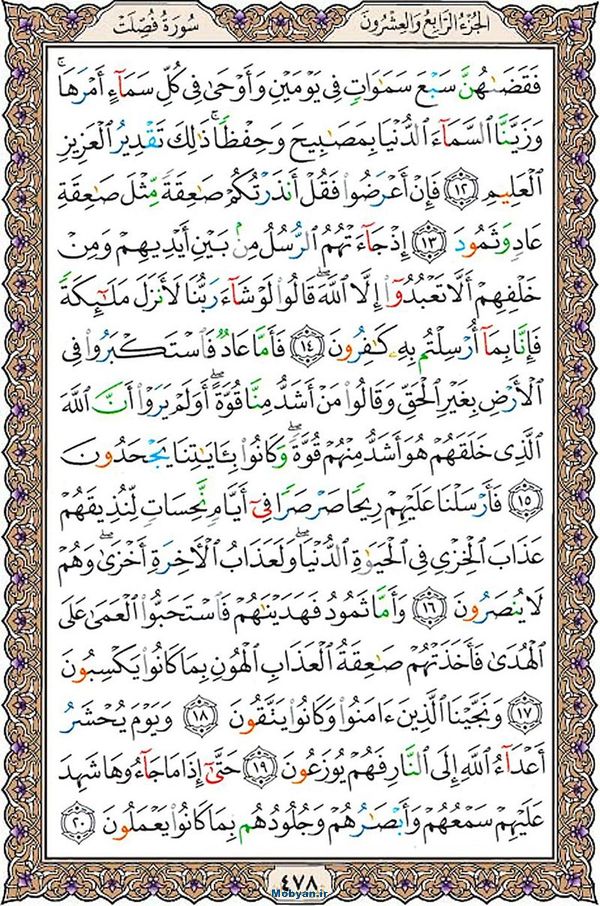 الجُزْءُ الرَّابِعُ وَالعِشْرُونَ
سُورَةُ فُصِّلَتْ
فَقَضَىٰهُنَّ سَبْعَ سَمَٰوَاتٍ فِى يَوْمَيْنِ وَأَوْحَىٰ فِى كُلِّ سَمَآءٍ أَمْرَهَا ۚ
وَزَيَّنَّا ٱلسَّمَآءَ ٱلدُّنْيَا بِمَصَٰبِيحَ وَحِفْظًا ۚ ذَٰلِكَ تَقْدِيرُ ٱلْعَزِيزِ
ٱلْعَلِيمِ ١٢ فَإِنْ أَعْرَضُوا۟ فَقُلْ أَنذَرْتُكُمْ صَٰعِقَةً مِّثْلَ صَٰعِقَةِ
عَادٍ وَثَمُودَ ١٣ إِذْ جَآءَتْهُمُ ٱلرُّسُلُ مِنۢ بَيْنِ أَيْدِيهِمْ وَمِنْ
خَلْفِهِمْ أَلَّا تَعْبُدُوٓا۟ إِلَّا ٱللَّهَ ۖ قَالُوا۟ لَوْ شَآءَ رَبُّنَا لَأَنزَلَ مَلَٰٓئِكَةً
فَإِنَّا بِمَآ أُرْسِلْتُم بِهِۦ كَٰفِرُونَ ١٤ فَأَمَّا عَادٌ فَٱسْتَكْبَرُوا۟ فِى
ٱلْأَرْضِ بِغَيْرِ ٱلْحَقِّ وَقَالُوا۟ مَنْ أَشَدُّ مِنَّا قُوَّةً ۖ أَوَلَمْ يَرَوْا۟ أَنَّ ٱللَّهَ
ٱلَّذِى خَلَقَهُمْ هُوَ أَشَدُّ مِنْهُمْ قُوَّةً ۖ وَكَانُوا۟ بِـَٔايَٰتِنَا يَجْحَدُونَ
١٥ فَأَرْسَلْنَا عَلَيْهِمْ رِيحًا صَرْصَرًا فِىٓ أَيَّامٍ نَّحِسَاتٍ لِّنُذِيقَهُمْ
عَذَابَ ٱلْخِزْىِ فِى ٱلْحَيَوٰةِ ٱلدُّنْيَا ۖ وَلَعَذَابُ ٱلْأَخِرَةِ أَخْزَىٰ ۖ وَهُمْ
لَا يُنصَرُونَ ١٦ وَأَمَّا ثَمُودُ فَهَدَيْنَٰهُمْ فَٱسْتَحَبُّوا۟ ٱلْعَمَىٰ عَلَى
ٱلْهُدَىٰ فَأَخَذَتْهُمْ صَٰعِقَةُ ٱلْعَذَابِ ٱلْهُونِ بِمَا كَانُوا۟ يَكْسِبُونَ
١٧ وَنَجَّيْنَا ٱلَّذِينَ ءَامَنُوا۟ وَكَانُوا۟ يَتَّقُونَ ١٨ وَيَوْمَ يُحْشَرُ
أَعْدَآءُ ٱللَّهِ إِلَى ٱلنَّارِ فَهُمْ يُوزَعُونَ ١٩ حَتَّىٰٓ إِذَا مَا جَآءُوهَا شَهِدَ
عَلَيْهِمْ سَمْعُهُمْ وَأَبْصَٰرُهُمْ وَجُلُودُهُم بِمَا كَانُوا۟ يَعْمَلُونَ ٢٠
٤٧٨
Mobyan.ir